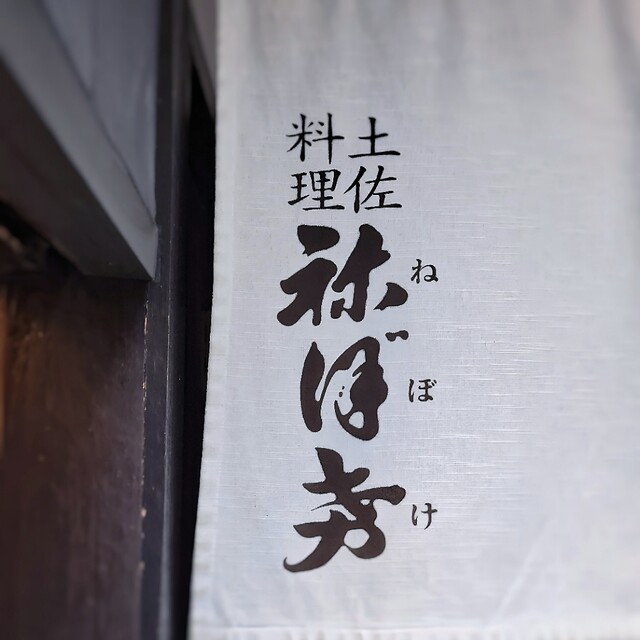 土佐
料理
祢ぼ希
ねぼけ